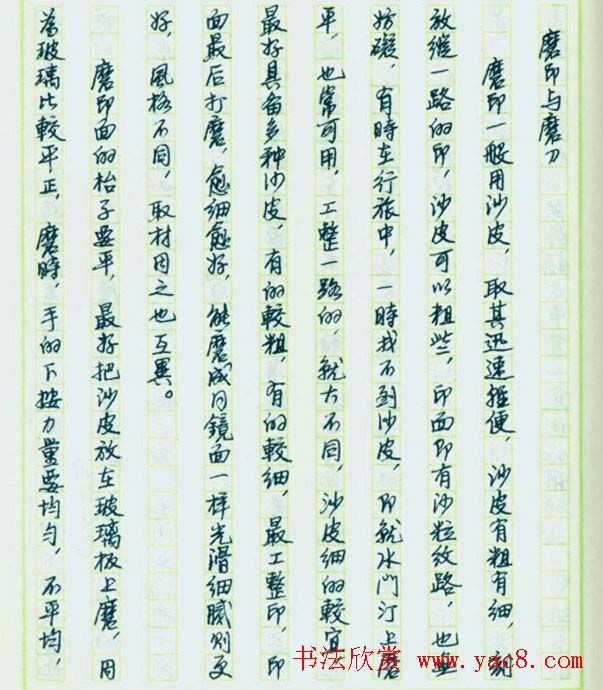 磨印与磨刀
磨印一般用沙皮，取其迅速轻便，沙皮有粗有细，刻
放纵一路的印，沙皮可以粗些，印面即有沙粒纹路，也無
妨礙，有時在行旅中，一時找不到沙皮，即就水門汀上磨
平，也常可用，工整一路的，就大不同，沙皮细的較宜，
最好具备多种沙皮，有的較粗，有的較细，最工整印，印
面最后打磨，愈细愈好，能磨成同鏡面一样光滑细膩则更
好，風格不同，取材用之也互異。
磨印面的枱子要平，最好把沙皮放在玻璃板上磨，因
為玻璃比較平正，磨時，手的下按力量要均匀，不平均，
书法欣赏 www.yac8.com